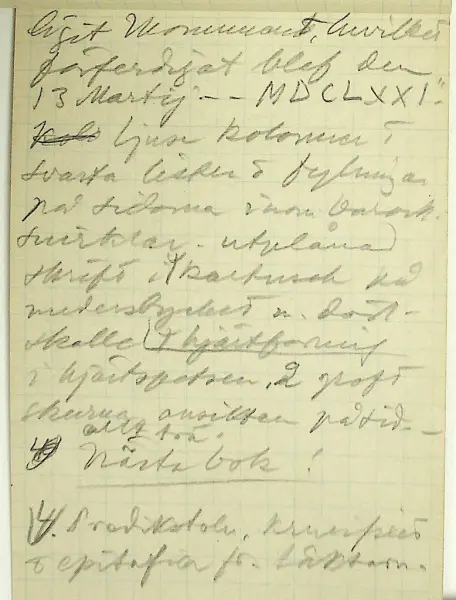 ligit Monument, hvilket
förferdigat blef den
13 Martij -- MDCLXXI."
ljusa kolonner i
svarta lister & fyllningar
på sidorna inom barock-
snirklar. utplånad
skrift i kartusch på
nederstycket m. död-
skalle i hjärtformig
i hjärtspetsen, 2 groft
skurna ansikten på sid.
allt trä.
Nästa bok!
14. Predikstol, krucifix
& epitafier fr. läktaren.